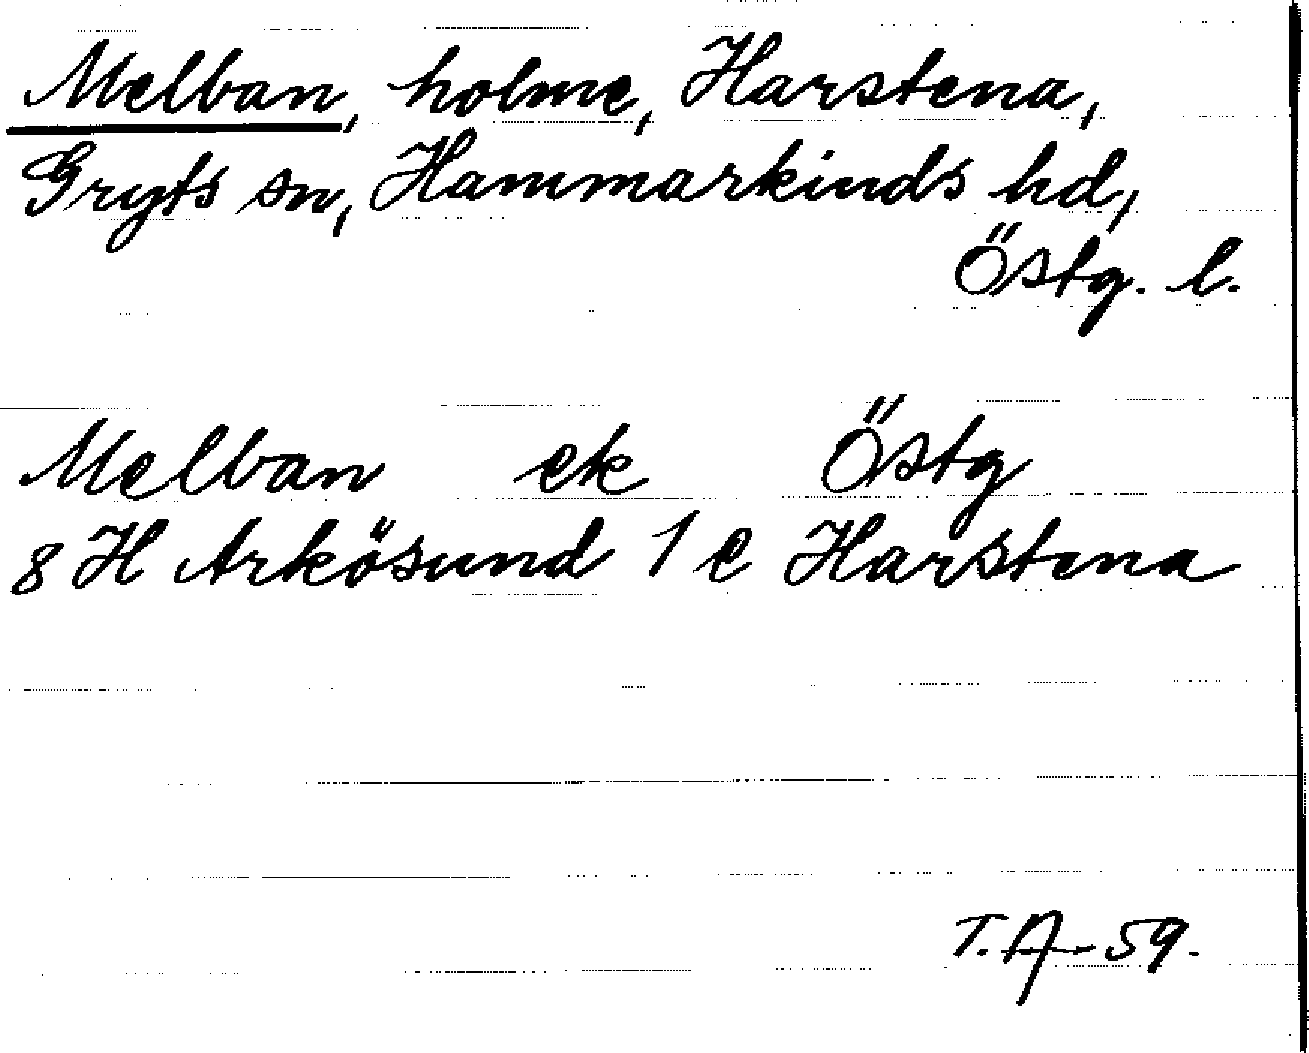 Melban, holme, Harstena,
Gryts sn, Hammarkinds hd,
Östg. l.
Melban ek Östg
8 H Arkösund 1 e Harstena
T.A-59.